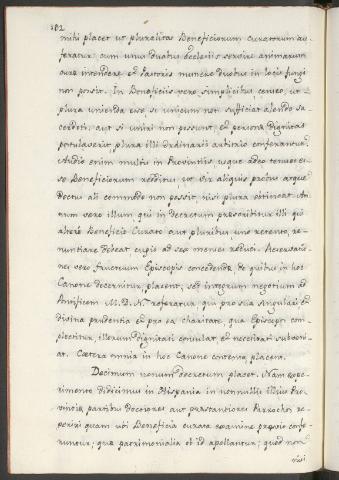 182
mihi placet ut pluralitas Beneficiorum curatorum au-
feratur: cum unus duabus ecclesiis servire animarum
curæ intendere et Pastoris munere duobus in locis fungi
non possit. In Beneficiis vero simplicibus, censeo, ut
plura unienda esse si unicum non sufficiat alendo sa-
cerdoti, aut si uniri non possunt, et personæ dignitas
postulaverit, plura illi Ordinarii arbitrio conferantur.
Audio enim multis in Provinciis usque adeo tenues es-
se Beneficiorum redditus, ut vir aliquis probus atque
Doctus ali commode non possit, nisi plura obtineat. An-
num vero illum qui in decretum præscribitur illi qui
altero Beneficio Curato aut pluribus uno retento, re-
nuntiare debeat cupio ad sex menses reduci. Reservatio-
nes vero fructuum Episcopis concedendæ de quibus in hoc
Canone decernitur, placent, sed integrum negotium ad
Pontificem M. D. N. referatur, qui pro sua singulari et
divina prudentia et pro ea charitate, qua Episcopos com-
plectitur, illorum dignitati consulat et necessitati subveni-
at. Cætera omnia in hoc Canone contenta placent.
Decimum nonum decretum placet. Nam expe-
rimento didicimus in Hispania in nonnullis illius Pro-
vinciæ partibus Doctiores aut præstantiores Parrochos re-
periri quam ubi Beneficia curata examine prævio confe-
runtur; quæ patrimonialia et id appellantur; quod non
nisi